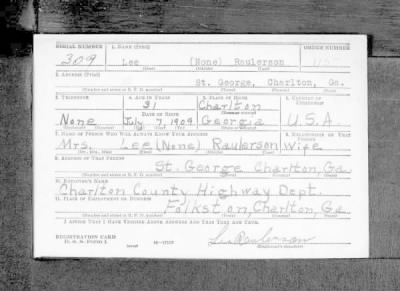 SERIAL NUMBER 1. NAME (Print) ORDER NUMBER
309 Lee (None) Raulerson
(First) (Middle) (Last)
2. ADDRESS (Print)
St. George, Charlton, Ga.
(Number and street or R. F. D. number) (Town) (County) (State)
3. TELEPHONE 4. AGE IN YEARS 5. PLACE OF BIRTH 6. COUNTRY OF CITIZENSHIP
31 Charlton
DATE OF BIRTH (Town or county)
None July 7, 1909 Georgia U.S.A.
(Exchange) (Number) (Mo.) (Day) (Yr.) (State or country)
7. NAME OF PERSON WHO WILL ALWAYS KNOW YOUR ADDRESS 8. RELATIONSHIP OF THAT PERSON
Mrs. Lee (None) Raulerson Wife
(Mr., Mrs., Miss) (First) (Middle) (Last)
9. ADDRESS OF THAT PERSON
St. George Charlton, Ga
(Number and street or R. F. D. number) (Town) (County) (State)
10. EMPLOYER'S NAME
Charlton County Highway Dept.
11. PLACE OF EMPLOYMENT OR BUSINESS
Folkston, Charlton, Ga
(Number and street or R. F. D. number) (Town) (County) (State)
I AFFIRM THAT I HAVE VERIFIED ABOVE ANSWERS AND THAT THEY ARE TRUE.
REGISTRATION CARD
D. S. S. FORM 1 Lee Raulerson
(Registrant's signature)